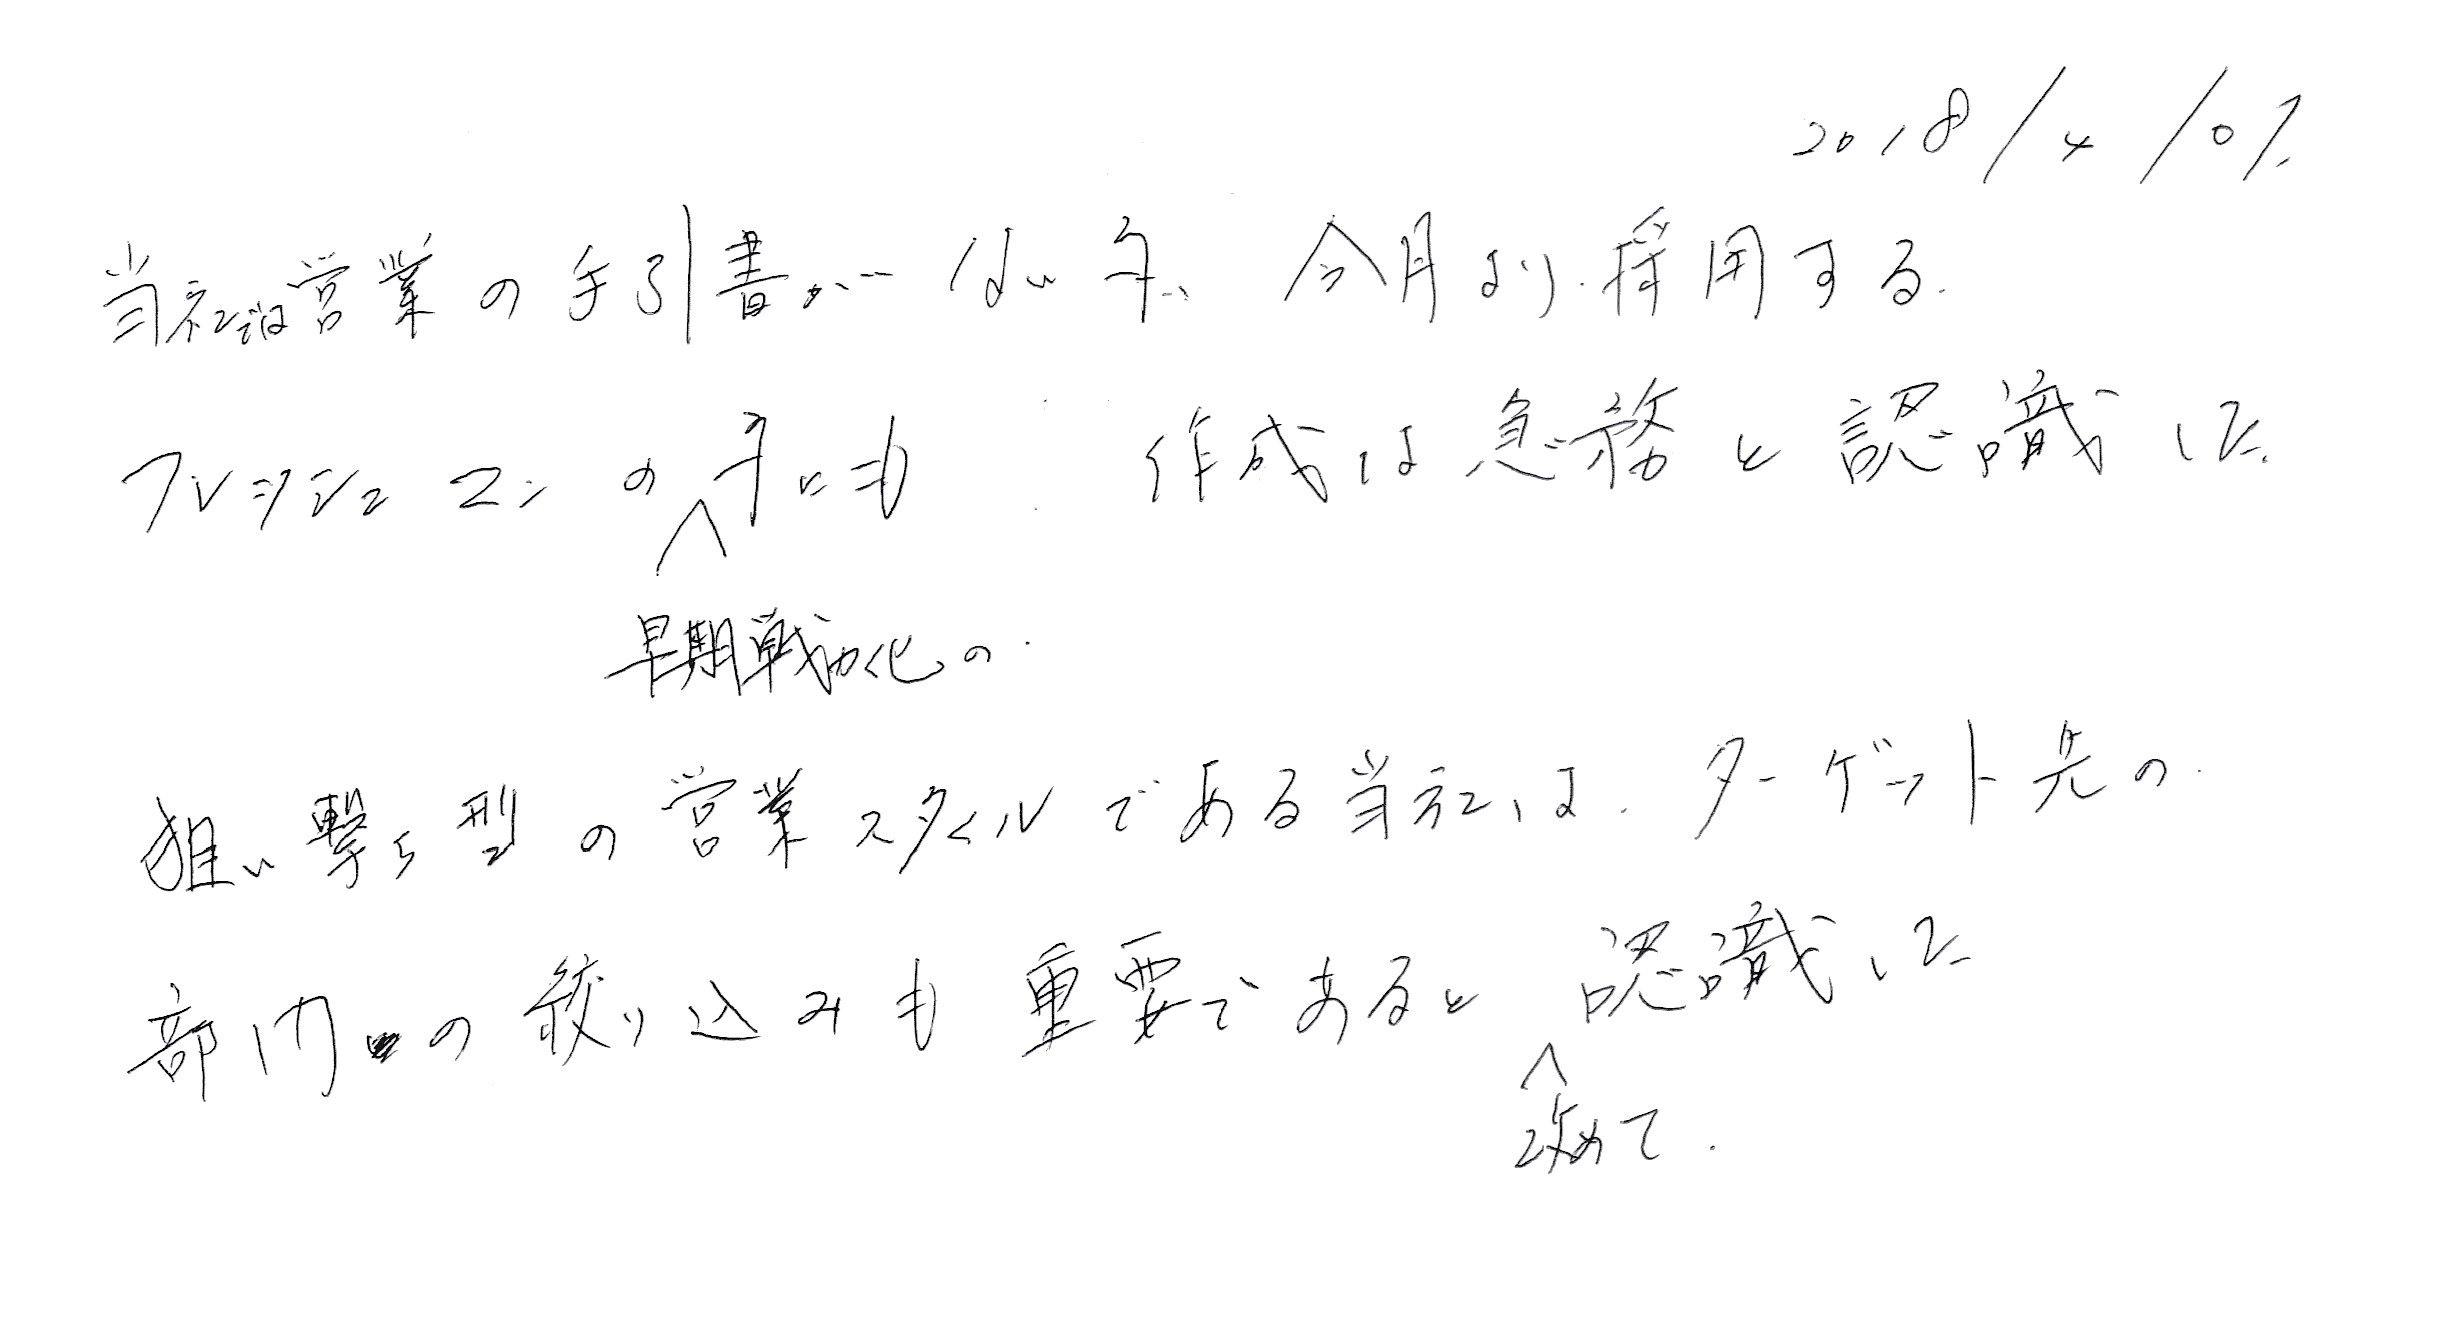 2018/4/07
当社では営業の手引書がない為、今月より採用する
フレッシュマンの為にも 作成は急務と認識した
早期戦力化の
狙い撃ち型の営業スタイルである当社は、ターゲット先の
部門の絞り込みも重要であると認識した
改めて